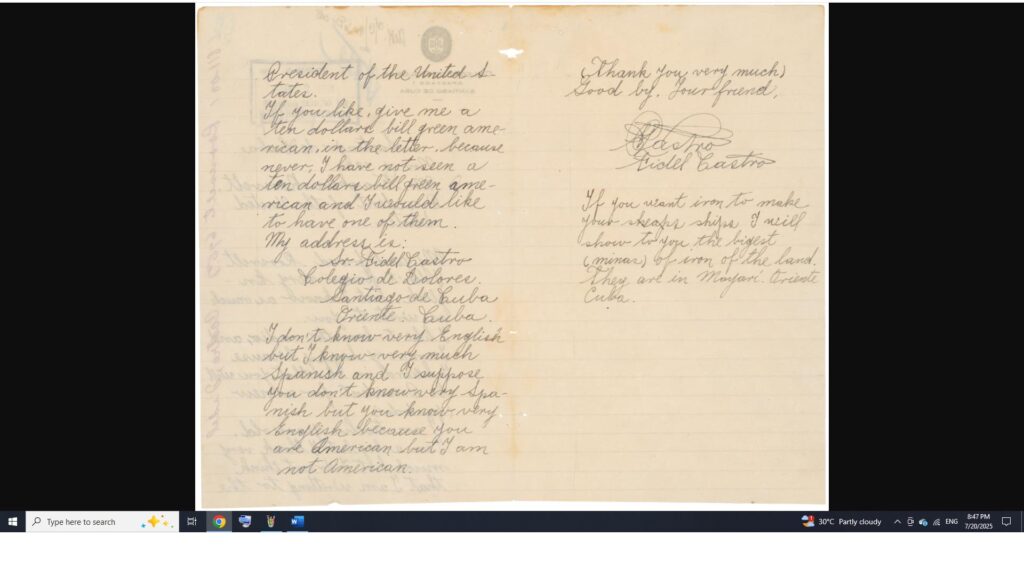 President of the United S-
tates.
If you like, give me a
ten dollars bill green ame-
rican, in the letter, because
never, I have not seen a
ten dollars bill green ame-
rican and I would like
to have one of them.
My address is:
Sr. Fidel Castro
Colegio de Dolores.
Santiago de Cuba
Oriente. Cuba.
I don't know very English
but I know very much
Spanish and I suppose
you don't know very Spa-
nish but you know very
English because you
are American but I am
not American.
(Thank you very much)
Good by. Your friend,
Castro
Fidel Castro
If you want iron to make
your sheaps ships I will
show to you the bigest
(minas) of iron of the land.
They are in Mayarí. Oriente
Cuba.
Type here to search
30°C Partly cloudy
ENG
8:47 PM
7/20/2025